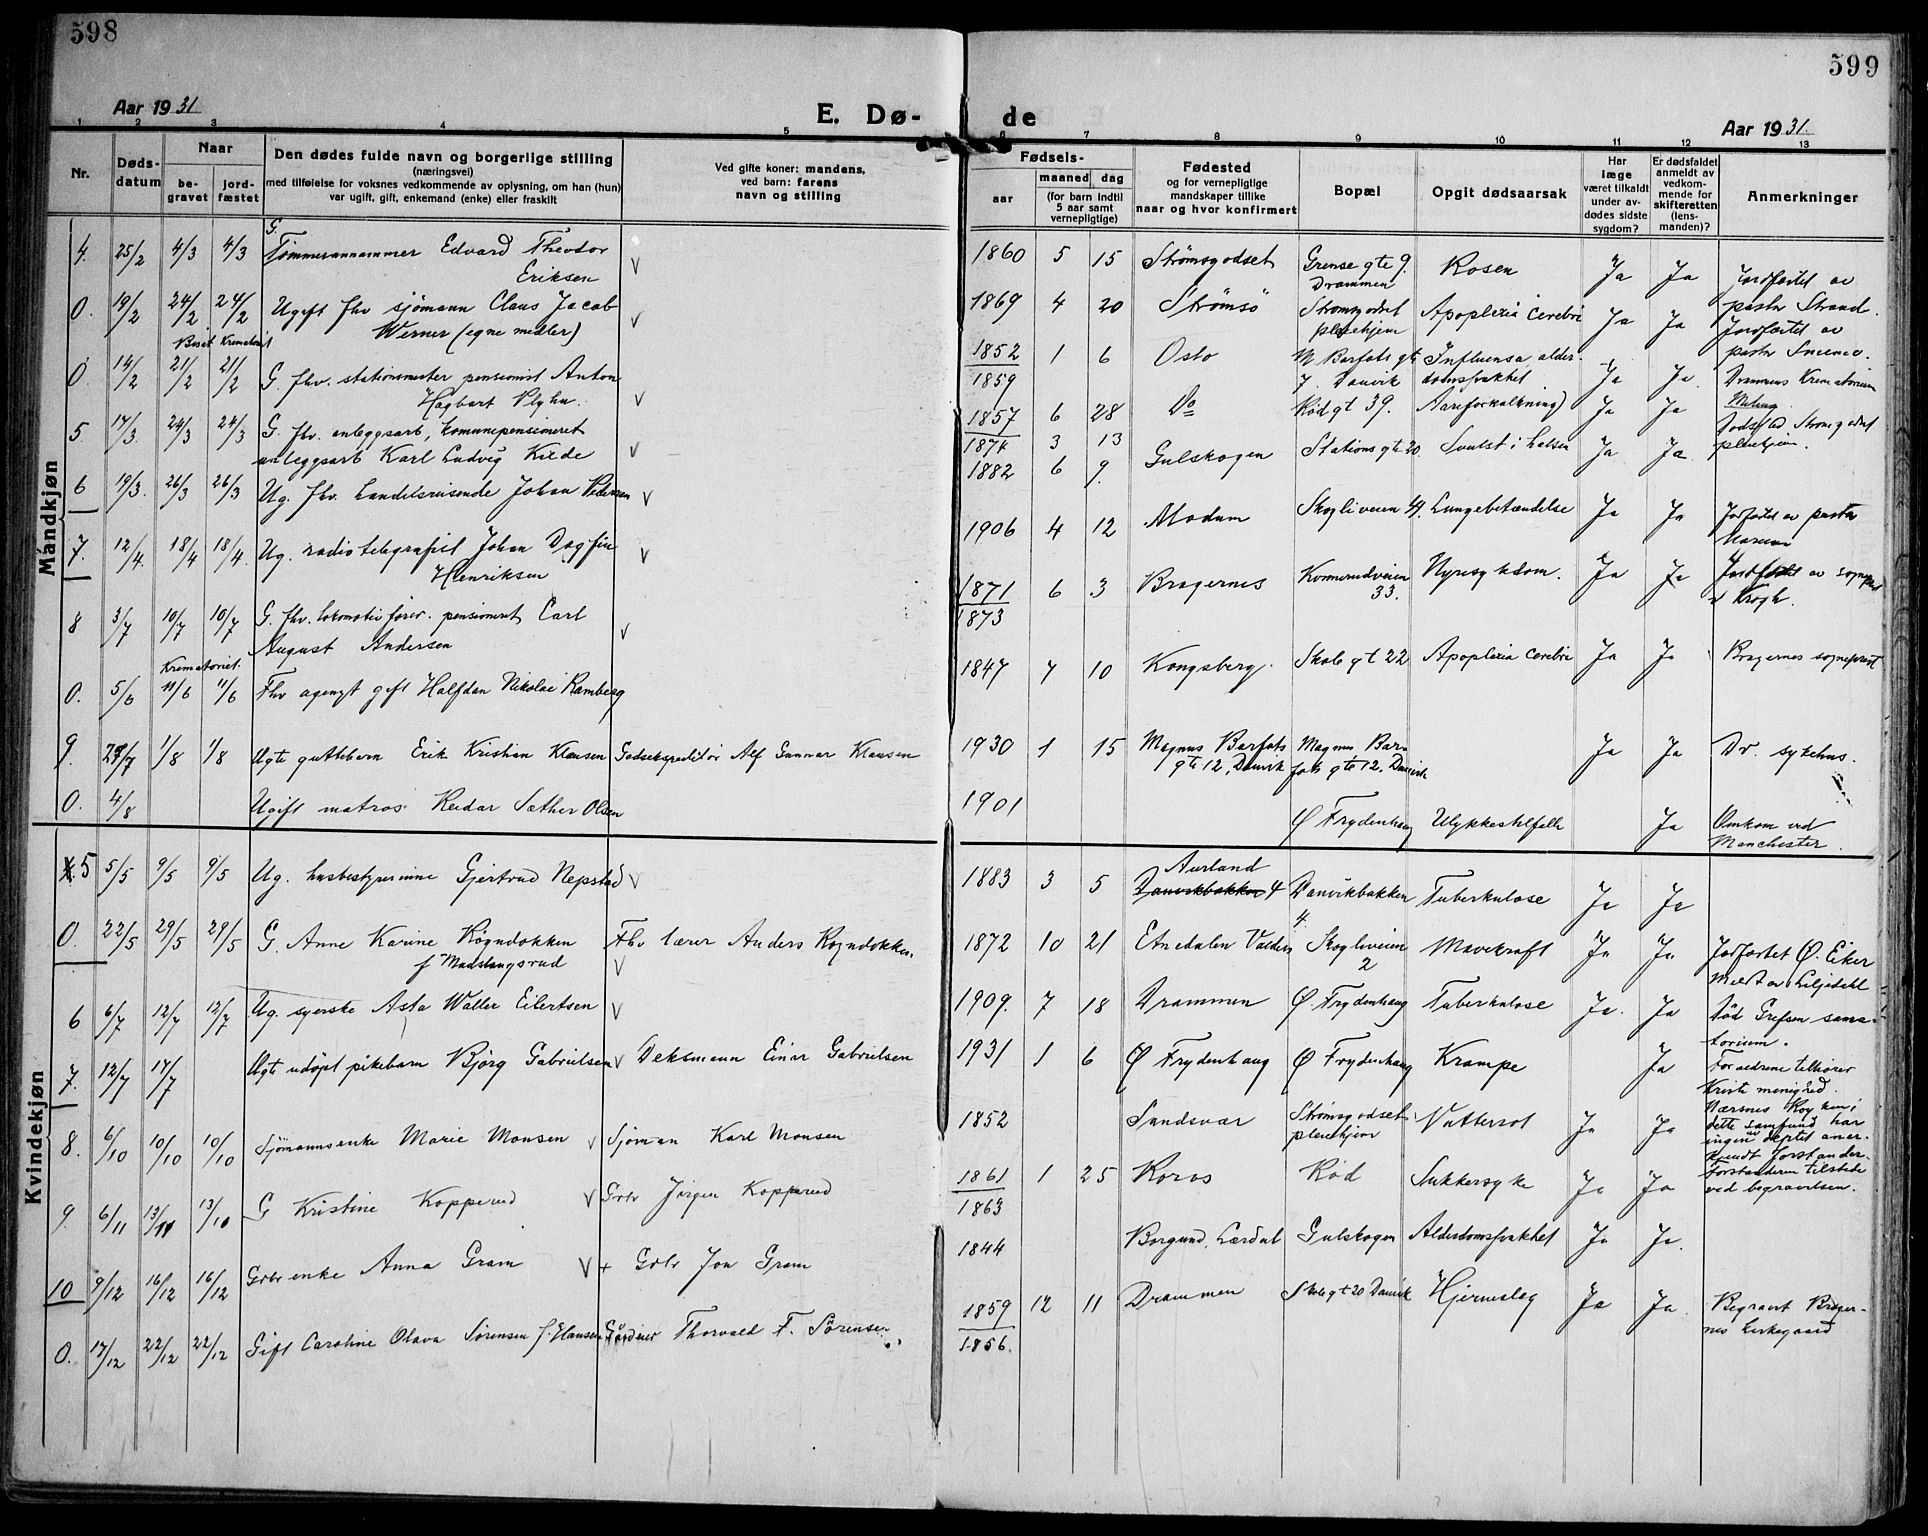 598
599
Aar 1931
E. Dø-
de
Aar 1931.
1
2
3
4
5
6
7
8
9
10
11
12
13
Nr.
Døds-
datum
Naar
be-
gravet
jord-
fæstet
Den dødes fulde navn og borgerlige stilling
(næringsvei)
med tilføielse for voksnes vedkommende av oplysning, om han (hun)
var ugift, gift, enkemand (enke) eller fraskilt
Ved gifte koner: mandens,
ved barn: farens
navn og stilling
Fødsels-
aar
maaned
dag
(for barn indtil
5 aar samt
vernepligtige)
Fødested
og for vernepligtige
mandskaper tillike
naar og hvor konfirmert
Bopæl
Opgit dødsaarsak
Har
læge
været tilkaldt
under av-
dødes sidste
sygdom?
Er dødsfaldet
anmeldt av
vedkom-
mende for
skifteretten
(lens-
manden)?
Anmerkninger
Mandkjøn
4. 25/2 4/3 4/3 G. Tømmerannammer Edvard Theodor
Eriksen V
1860 5 15 Strømsgodset Grense gte 9. Drammen Rosen Ja Ja Jordfæstet av
pastor Strand.
0. 19/2 24/2 24/2 Ugift fhv sjømann Claus Jacob
Werner (egne midler) V
1869 4 20 Strømsø Strømsgodset
pleiehjem Apoplexia cerebri Ja Ja Jordfæstet av
pastor
Krematoriet
0. 14/2 21/2 21/2 G. fhv. stationsmester pensionist Anton
Hagbart Plyhn. V
1852
1859 1 6 Oslo M Barfots gt
7. Danvik Influensa alder-
domsvakhet. Ja Ja. Drammens Krematorium
5 17/3. 24/3 24/3 G. fhv. anleggsarb, komunepensioneret
anleggsarb Karl Ludvig Kilde V
1857 6 28 Do Rødgt 39. Aareforkalkning) Ja Ja Dødsted Strømsgodset
pleiehjem.
1874 3 13
6 19/3. 26/3 26/3 Ug. fhv. handelsreisende Johan Pedersen V
1882 6 9. Gulskogen Stationsgte 20 Svulst i halsen Ja Ja.
7. 12/4. 18/4 18/4. Ug. radiotelegrafist Johan Dagfin
Henriksen V
1906 4 12 Modum Skogliveien 44. Lungebetændelse Ja Ja Jordfæstet av pastor
8 3/7 10/7 10/7 G. fhv. lokomotivfører. pensioneret Carl
August Andersen V
1871
1873 6 3 Bragernes Konnerudveien
33. Nyresykdom. Ja Ja Jordfæstet av sogneprest
Krogh.
Krematoriet.
0. 5/6 11/6 11/6 Fhv agent gift Halfdan Nikolai Ramberg
1847 7 10 Kongsberg. Skolegt 22 Apoplexia cerebri Ja Ja Bragernes sogneprest
9. 27/7 1/8 1/8 Ugte guttebarn Erik Kristian Klausen Godsekspeditør Alf Gunnar Klausen
1930 1 15 Magnus Barfots
gte 12, Danvik Magnus Bar-
fots gte 12. Danvik Ja Ja Dr. sykehus.
0. 4/8 Ugift matros Reidar Sæther Olsen
1901 Ø Frydenhaug Ulykkestilfelle Ja Omkom ved
Manchester.
Kvindekjøn
5 5/5 9/5 9/5 Ug. husbestyrerinne Gjertrud Nepstad V
1883 3 5 Aurland
Danvikbakken 4 Danvikbakken
4. Tuberkulose Ja Ja
0. 22/5 29/5 29/5 G. Anne Karine Rögndokken
f Madslangsrud Fhv lærer Anders Rogndokken.
V
1872 10 21 Etnedalen Valdres Skogliveien
2 Mavekræft Ja Ja Jordfæstet Ø. Eiker
Meldt av Liljedahl
6 6/7 12/7 12/7 Ug. syerske Asta Waller Eilertsen V
1909. 7 18 Drammen Ø. Frydenhaug Tuberkulose Ja. Ja Død Grefsen sana-
torium.
7. 12/7 17/7 Ugte udøpt pikebarn Bjørg Gabrielsen V Deksmann Einar Gabrielsen
1931 1 6 Ø Frydenhaug Ø Frydenhaug Krampe Ja Forældrene tilhører
Kristi menighed.
Nærsnes Røyken i
dette samfund har
ingen
Forstanderen tilstede
ved begravelsen.
8. 6/10 10/10 10/10 Sjømannsenke Marie Monsen V Sjøman Karl Monsen
1852 Sandsvær Strømsgodset
pleiehjem Vattersot Ja Ja
9. 6/11 13/11 13/10 G Kristine Kopperud V Grbr Jørgen Kopperud
1861
1863 1 25 Røros Rød Sukkersyke Ja Ja
10 9/12 16/12 16/12 Grbr enke Anna Gram V + Grbr Jon Gram
1844 Borgund, Lærdal Gulskogen Alderdomsvakhet Ja Ja.
0. 17/12 22/12 22/12 Gift Caroline Olava Sørensen f. Hansen Thorvald F. Sørensen
1859
1856. 12 11 Drammen Skolegt 20 Danvik Hjerneslag Ja Ja. Begravet Brager-
nes kirkegaard